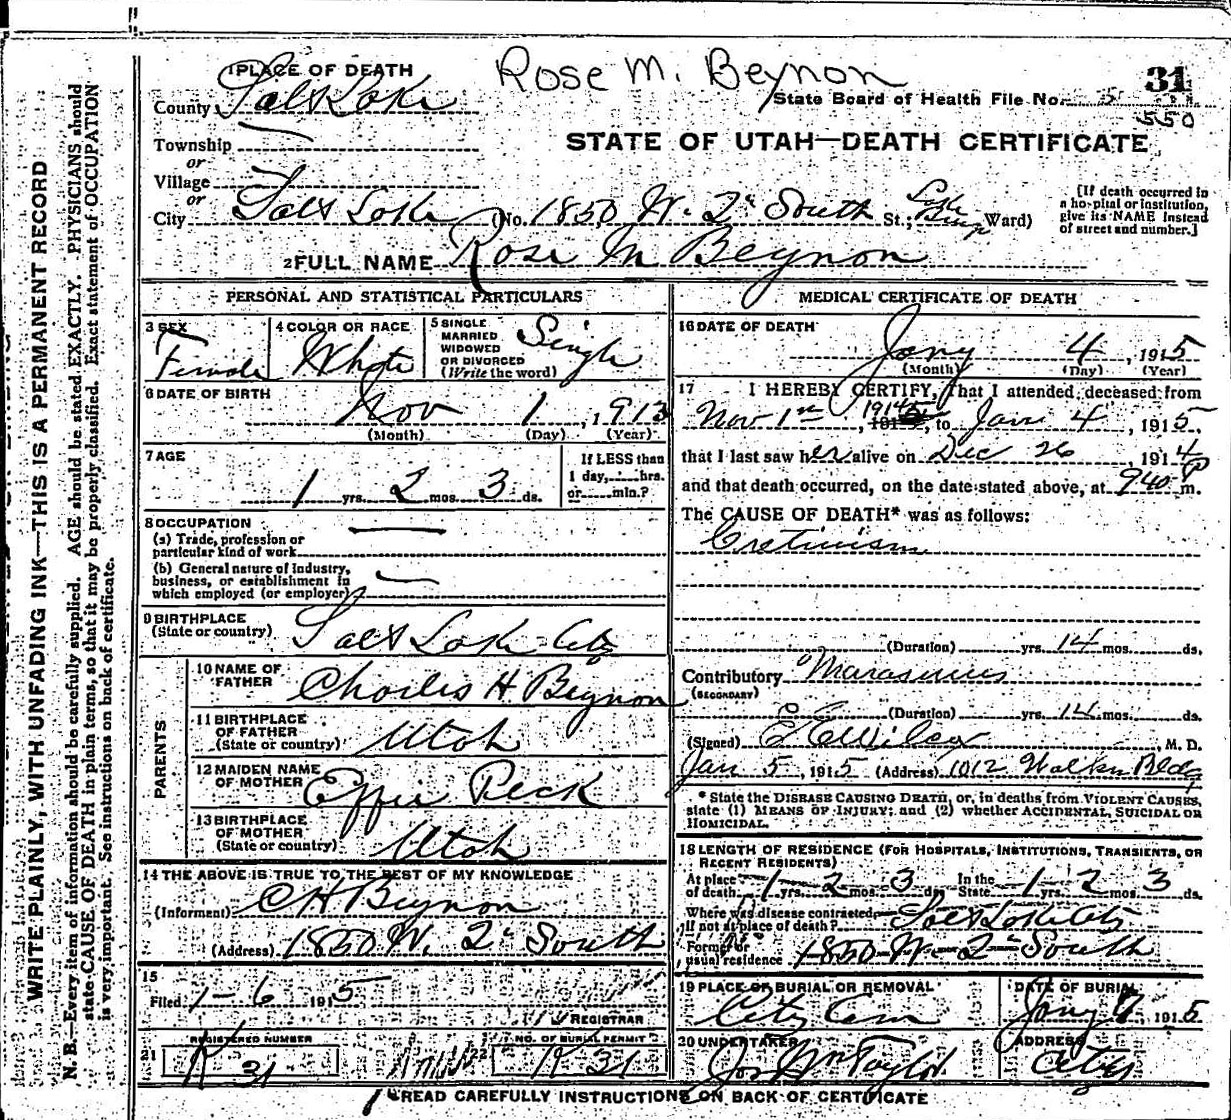 Rose M. Beynon
31
State Board of Health File No. 5
550
STATE OF UTAH—DEATH CERTIFICATE
1 PLACE OF DEATH
County Salt Lake
Township
or
Village
or
City Salt Lake (No. 1850 W. 2d South St.; Ward)
[If death occurred in a hospital or institution, give its NAME instead of street and number.]
2 FULL NAME Rose M Beynon
PERSONAL AND STATISTICAL PARTICULARS
3 SEX Female
4 COLOR OR RACE White
5 SINGLE MARRIED WIDOWED OR DIVORCED (Write the word) Single
6 DATE OF BIRTH Nov 1, 1913
(Month) (Day) (Year)
7 AGE 1 yrs. 2 mos. 3 ds.
If LESS than 1 day, hrs. or min.?
8 OCCUPATION
(a) Trade, profession or particular kind of work
(b) General nature of industry, business, or establishment in which employed (or employer)
9 BIRTHPLACE (State or country) Salt Lake City
PARENTS
10 NAME OF FATHER Charles H Beynon
11 BIRTHPLACE OF FATHER (State or country) Utah
12 MAIDEN NAME OF MOTHER Effie Peck
13 BIRTHPLACE OF MOTHER (State or country) Utah
14 THE ABOVE IS TRUE TO THE BEST OF MY KNOWLEDGE
(Informent) CH Beynon
(Address) 1850 W. 2d South
15
Filed 1-6 1915
REGISTRAR
21 REGISTERED NUMBER K 31
22 NO. OF BURIAL PERMIT K 31
MEDICAL CERTIFICATE OF DEATH
16 DATE OF DEATH Jany 4, 1915
(Month) (Day) (Year)
17 I HEREBY CERTIFY, That I attended deceased from
Nov 1st, 1914, to Jan 4, 1915,
that I last saw her alive on Dec 26 1914
and that death occurred, on the date stated above, at 940 P m.
The CAUSE OF DEATH* was as follows:
Cretinism
(Duration) yrs. 14 mos. ds.
Contributory Marasmus
(SECONDARY)
(Duration) yrs. 14 mos. ds.
(Signed) E C Wilcox, M. D.
Jan 5, 1915 (Address) 1012 Walker Bldg
* State the DISEASE CAUSING DEATH, or, in deaths from VIOLENT CAUSES, state (1) MEANS OF INJURY; and (2) whether ACCIDENTAL, SUICIDAL OR HOMICIDAL.
18 LENGTH OF RESIDENCE (FOR HOSPITALS, INSTITUTIONS, TRANSIENTS, OR RECENT RESIDENTS)
At place of death 1 yrs. 2 mos. 3 ds. In the State 1 yrs. 2 mos. 3 ds.
Where was disease contracted, if not at place of death? Salt Lake City
Former or usual residence 1850 W 2d South
19 PLACE OF BURIAL OR REMOVAL City Cem
DATE OF BURIAL Jany 7, 1915
20 UNDERTAKER Jos Wm Taylor
ADDRESS City
READ CAREFULLY INSTRUCTIONS ON BACK OF CERTIFICATE
WRITE PLAINLY, WITH UNFADING INK—THIS IS A PERMANENT RECORD
N. B.—Every item of information should be carefully supplied. AGE should be stated EXACTLY. PHYSICIANS should
state CAUSE OF DEATH in plain terms, so that it may be properly classified. Exact statement of OCCUPATION
is very important. See instructions on back of certificate.